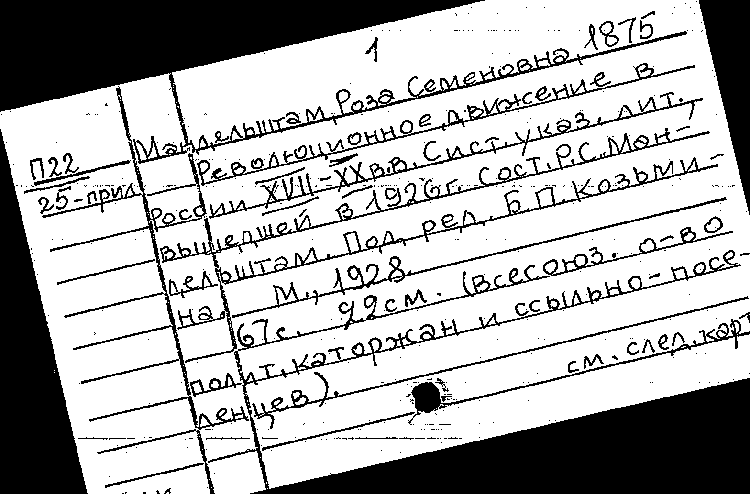 1
Мандельштам, Роза Семеновна, 1875
П22
25-прил
Революционное движение в
России XVII-XX в.в. Сист. указ. лит.,
вышедшей в 1926г. Сост. Р.С. Ман-
дельштам. Под. ред. Б.П. Козьми-
на. М., 1928.
67с. 22см. (Всесоюз. о-во
полит. каторжан и ссыльно-посе-
ленцев).
см. след. карт